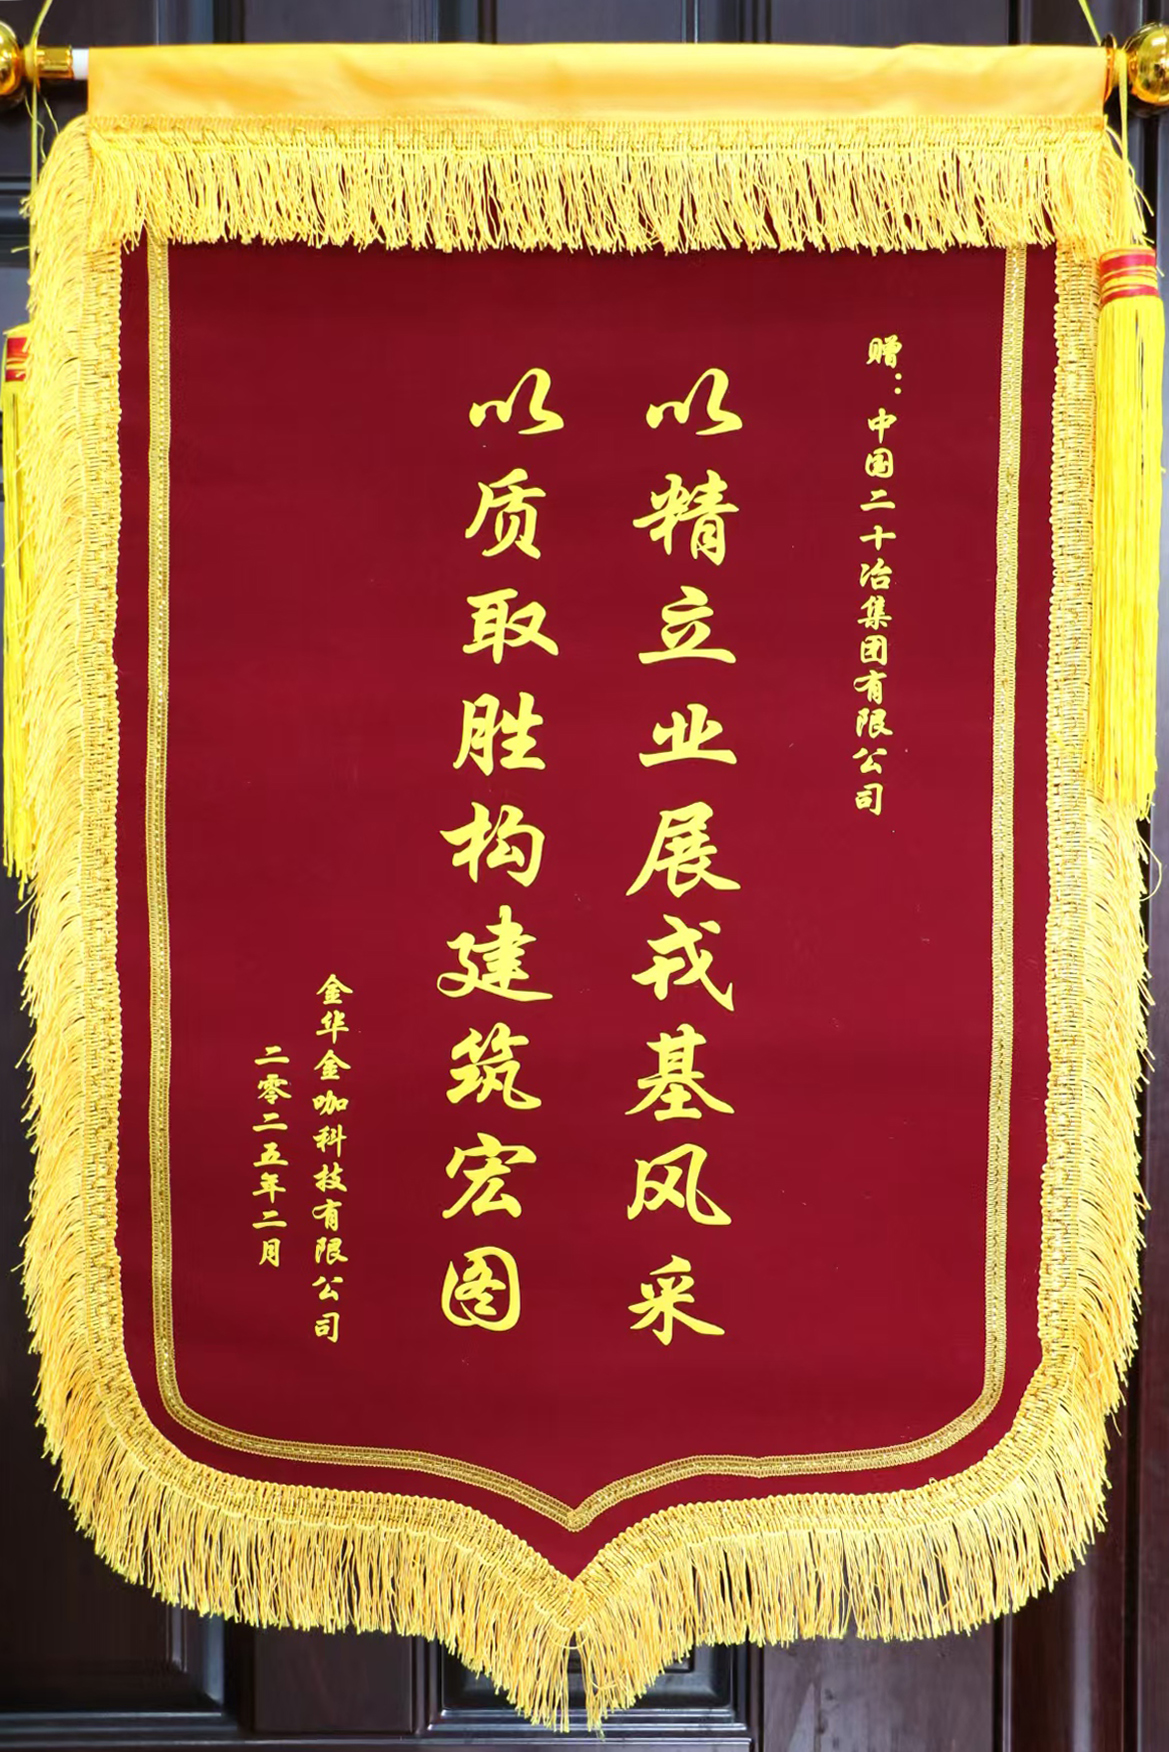 赠：中国二十冶集团有限公司
以精立业展戎基风采
以质取胜构建筑宏图
金华金咖科技有限公司
二零二五年二月